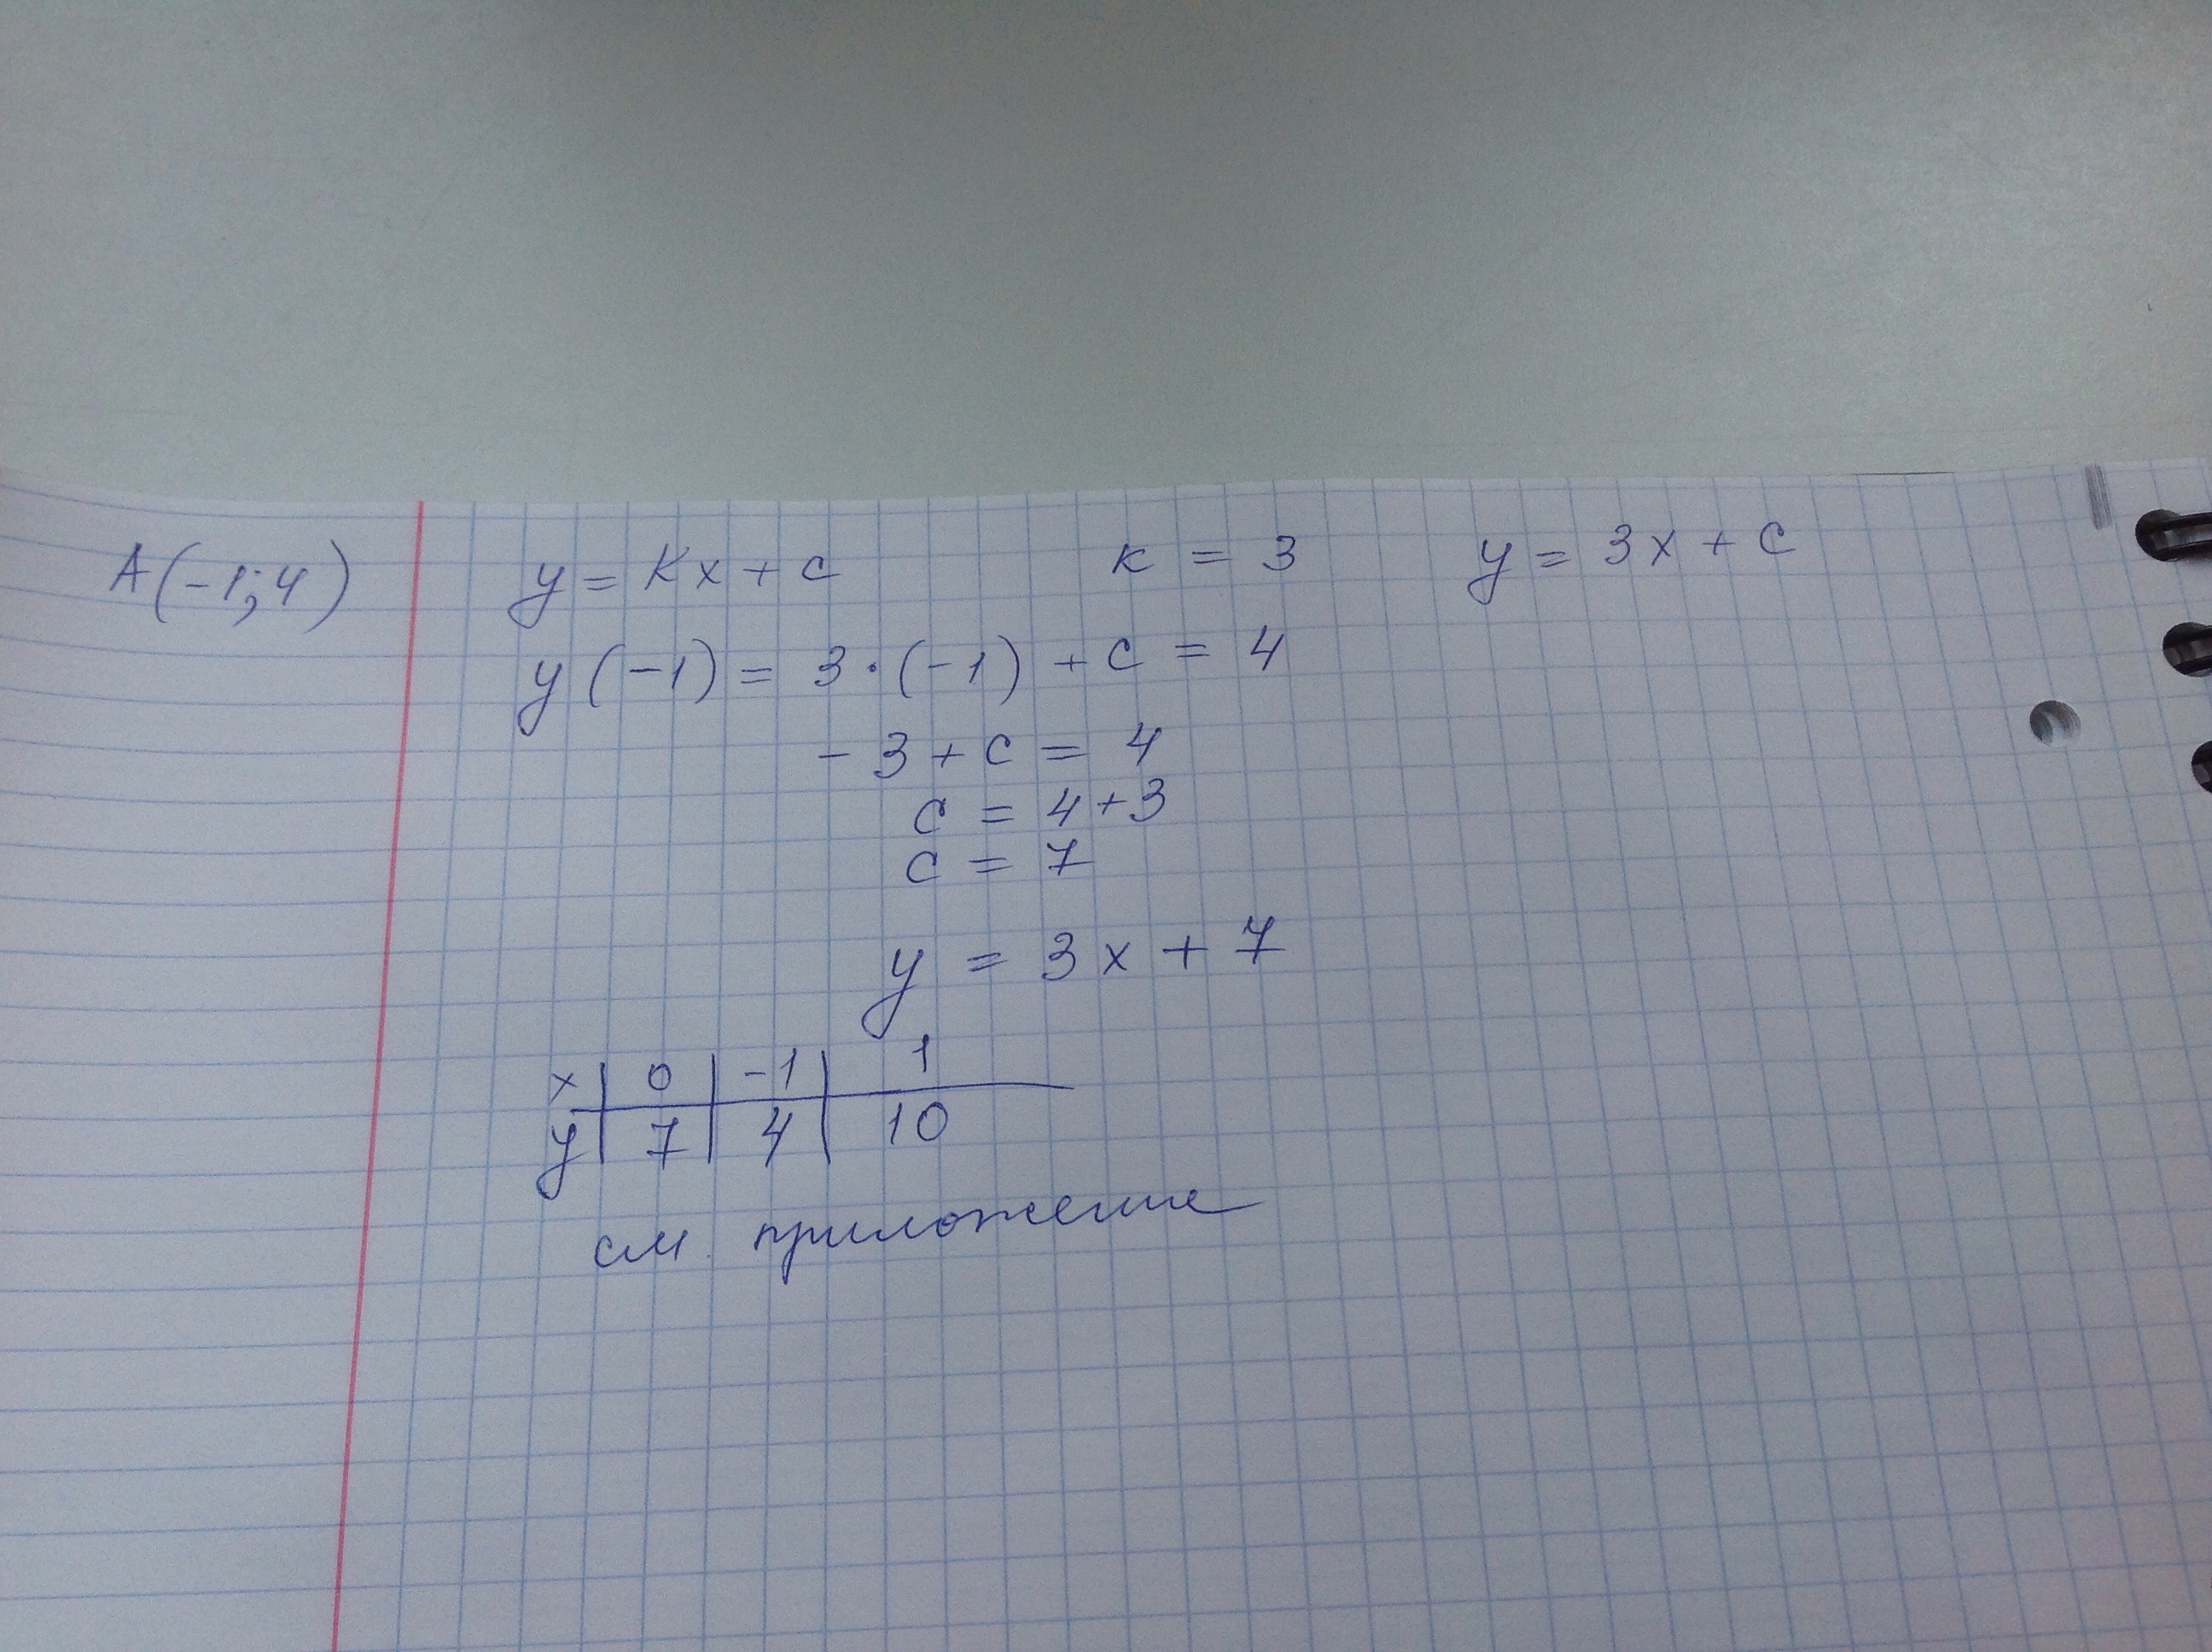 A(-1;4) y = Kx + c к = 3 y = 3x + c
y(-1) = 3·(-1) + c = 4
-3 + c = 4
c = 4+3
c = 7
y = 3x + 7
x | 0 | -1 | 1
y | 7 | 4 | 10
см. приложение